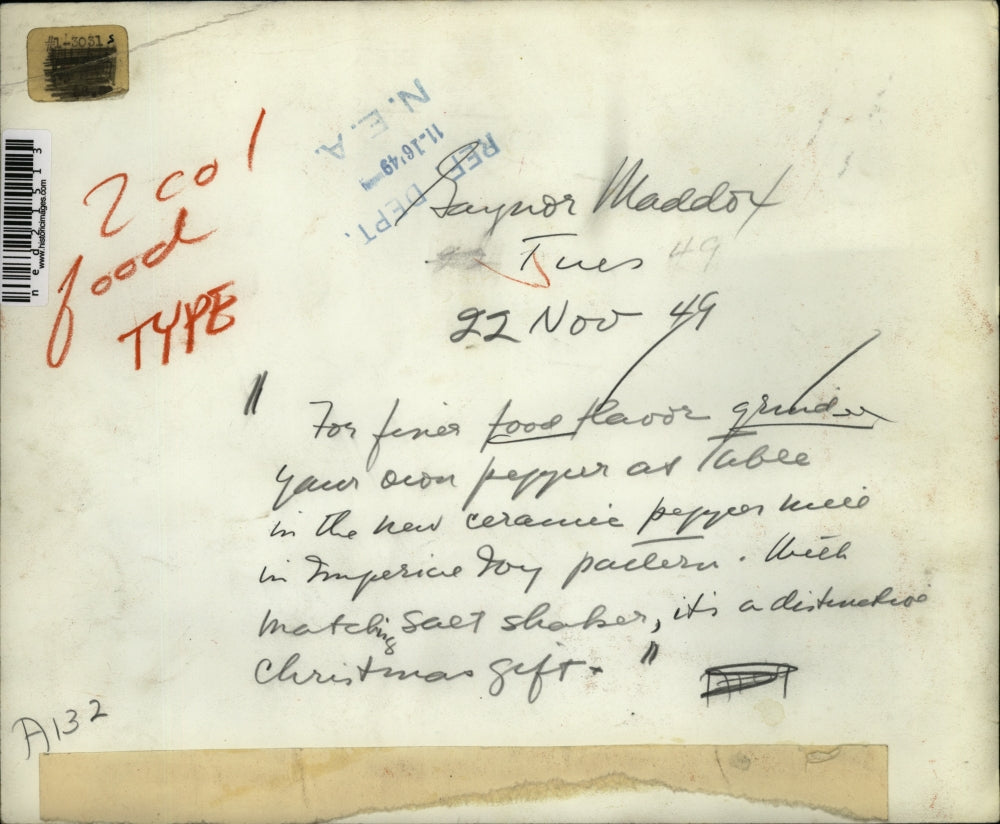 #1-3031 s
N.E.A.
11-16'49
REF. DEPT.
2 col
food
TYPE
www.historicimages.com
Gaynor Maddox
Tues 49
22 Nov 49
" For finer food flavor grind
your own pepper at Table
in the new ceramic pepper mill
in Imperial Ivy pattern. With
matching salt shaker, it's a distinctive
Christmas gift. "
A132